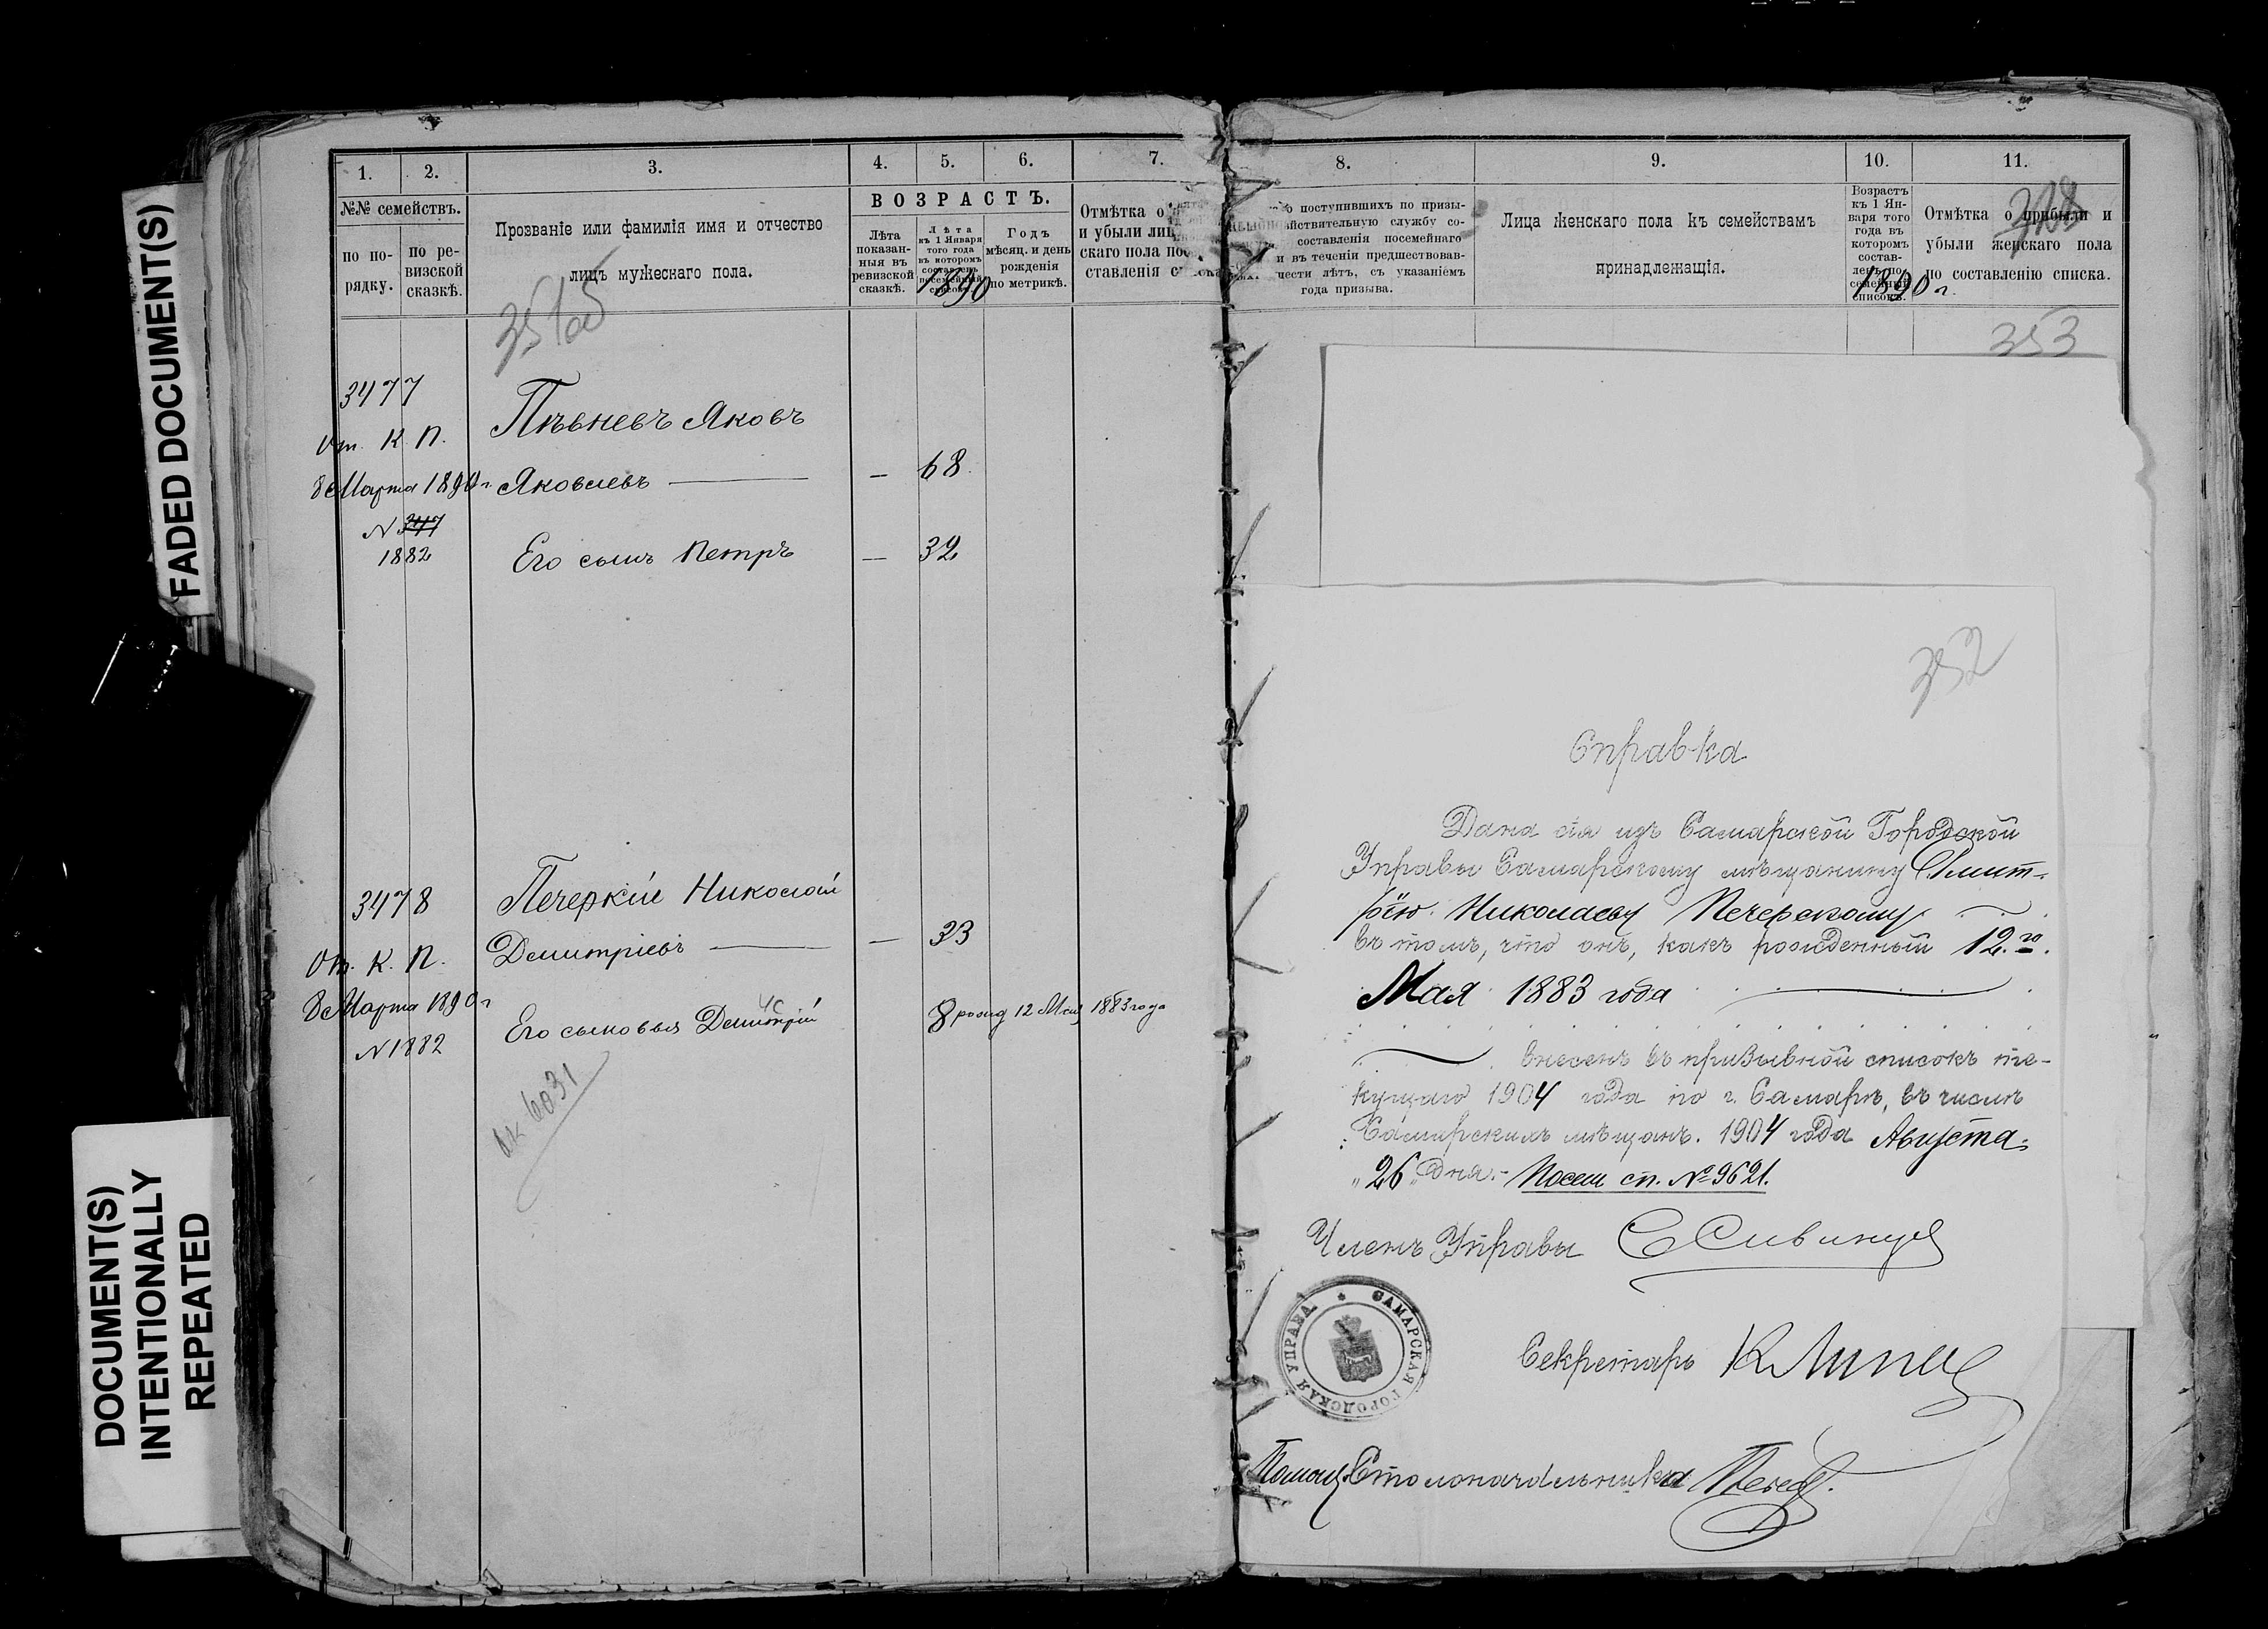 FADED DOCUMENT(S)
DOCUMENT(S)
INTENTIONALLY
REPEATED
1.
2.
3.
4.
5.
6.
7.
№№ семействъ.
по по-
рядку.
по ре-
визской
сказкѣ.
Прозваніе или фамилія имя и отчество
лицъ мужескаго пола.
ВОЗРАСТЪ.
Лѣта
показан-
ныя въ
ревизской
сказкѣ.
Лѣта
къ 1 Января
того года
въ которомъ
составленъ
посемейный
списокъ.
1890
Годъ
мѣсяц. и день
рожденія
по метрикѣ.
Отмѣтка о
и убыли лиц
скаго пола по
ставленія
3477
От. К. П.
8 Марта 1890 г
N 347
1882
Пѣвневъ Яковъ
Яковлевъ — 68
Его сынъ Петръ — 32
3478
От. К. П.
8 Марта 1890 г
N 1882
Печеркій Николай
Дмитріевъ — 33
Его сыновья Дмитрій 8 рожд 12 Мая 1883 года
ок 6031
8.
9.
10.
11.
о поступившихъ по призы-
йствительную службу со-
составленія посемейнаго
и въ теченіи предшествовав-
шести лѣтъ, съ указаніемъ
года призыва.
Лица женскаго пола къ семействамъ
принадлежащія.
Возрастъ
къ 1 Ян-
варя того
года въ
которомъ
состав-
ленъ по-
семейный
списокъ.
1890 г.
Отмѣтка о прибыли и
убыли женскаго пола
по составленію списка.
353
352
Справка
Дана сія изъ Самарской Городской
Управы Самарскому мѣщанину Дмит-
рію Николаеву Печерскому
въ томъ, что онъ, какъ рожденный 12.го
Мая 1883 года
внесенъ въ призывной списокъ те-
кущаго 1904 года по г. Самарѣ, въ числѣ
Самарскихъ мѣщанъ. 1904 года Августа
"26" дня. Посем сп. № 9621.
Членъ Управы
САМАРСКАЯ ГОРОДСКАЯ УПРАВА
Секретарь
Помощ. Столоначальника